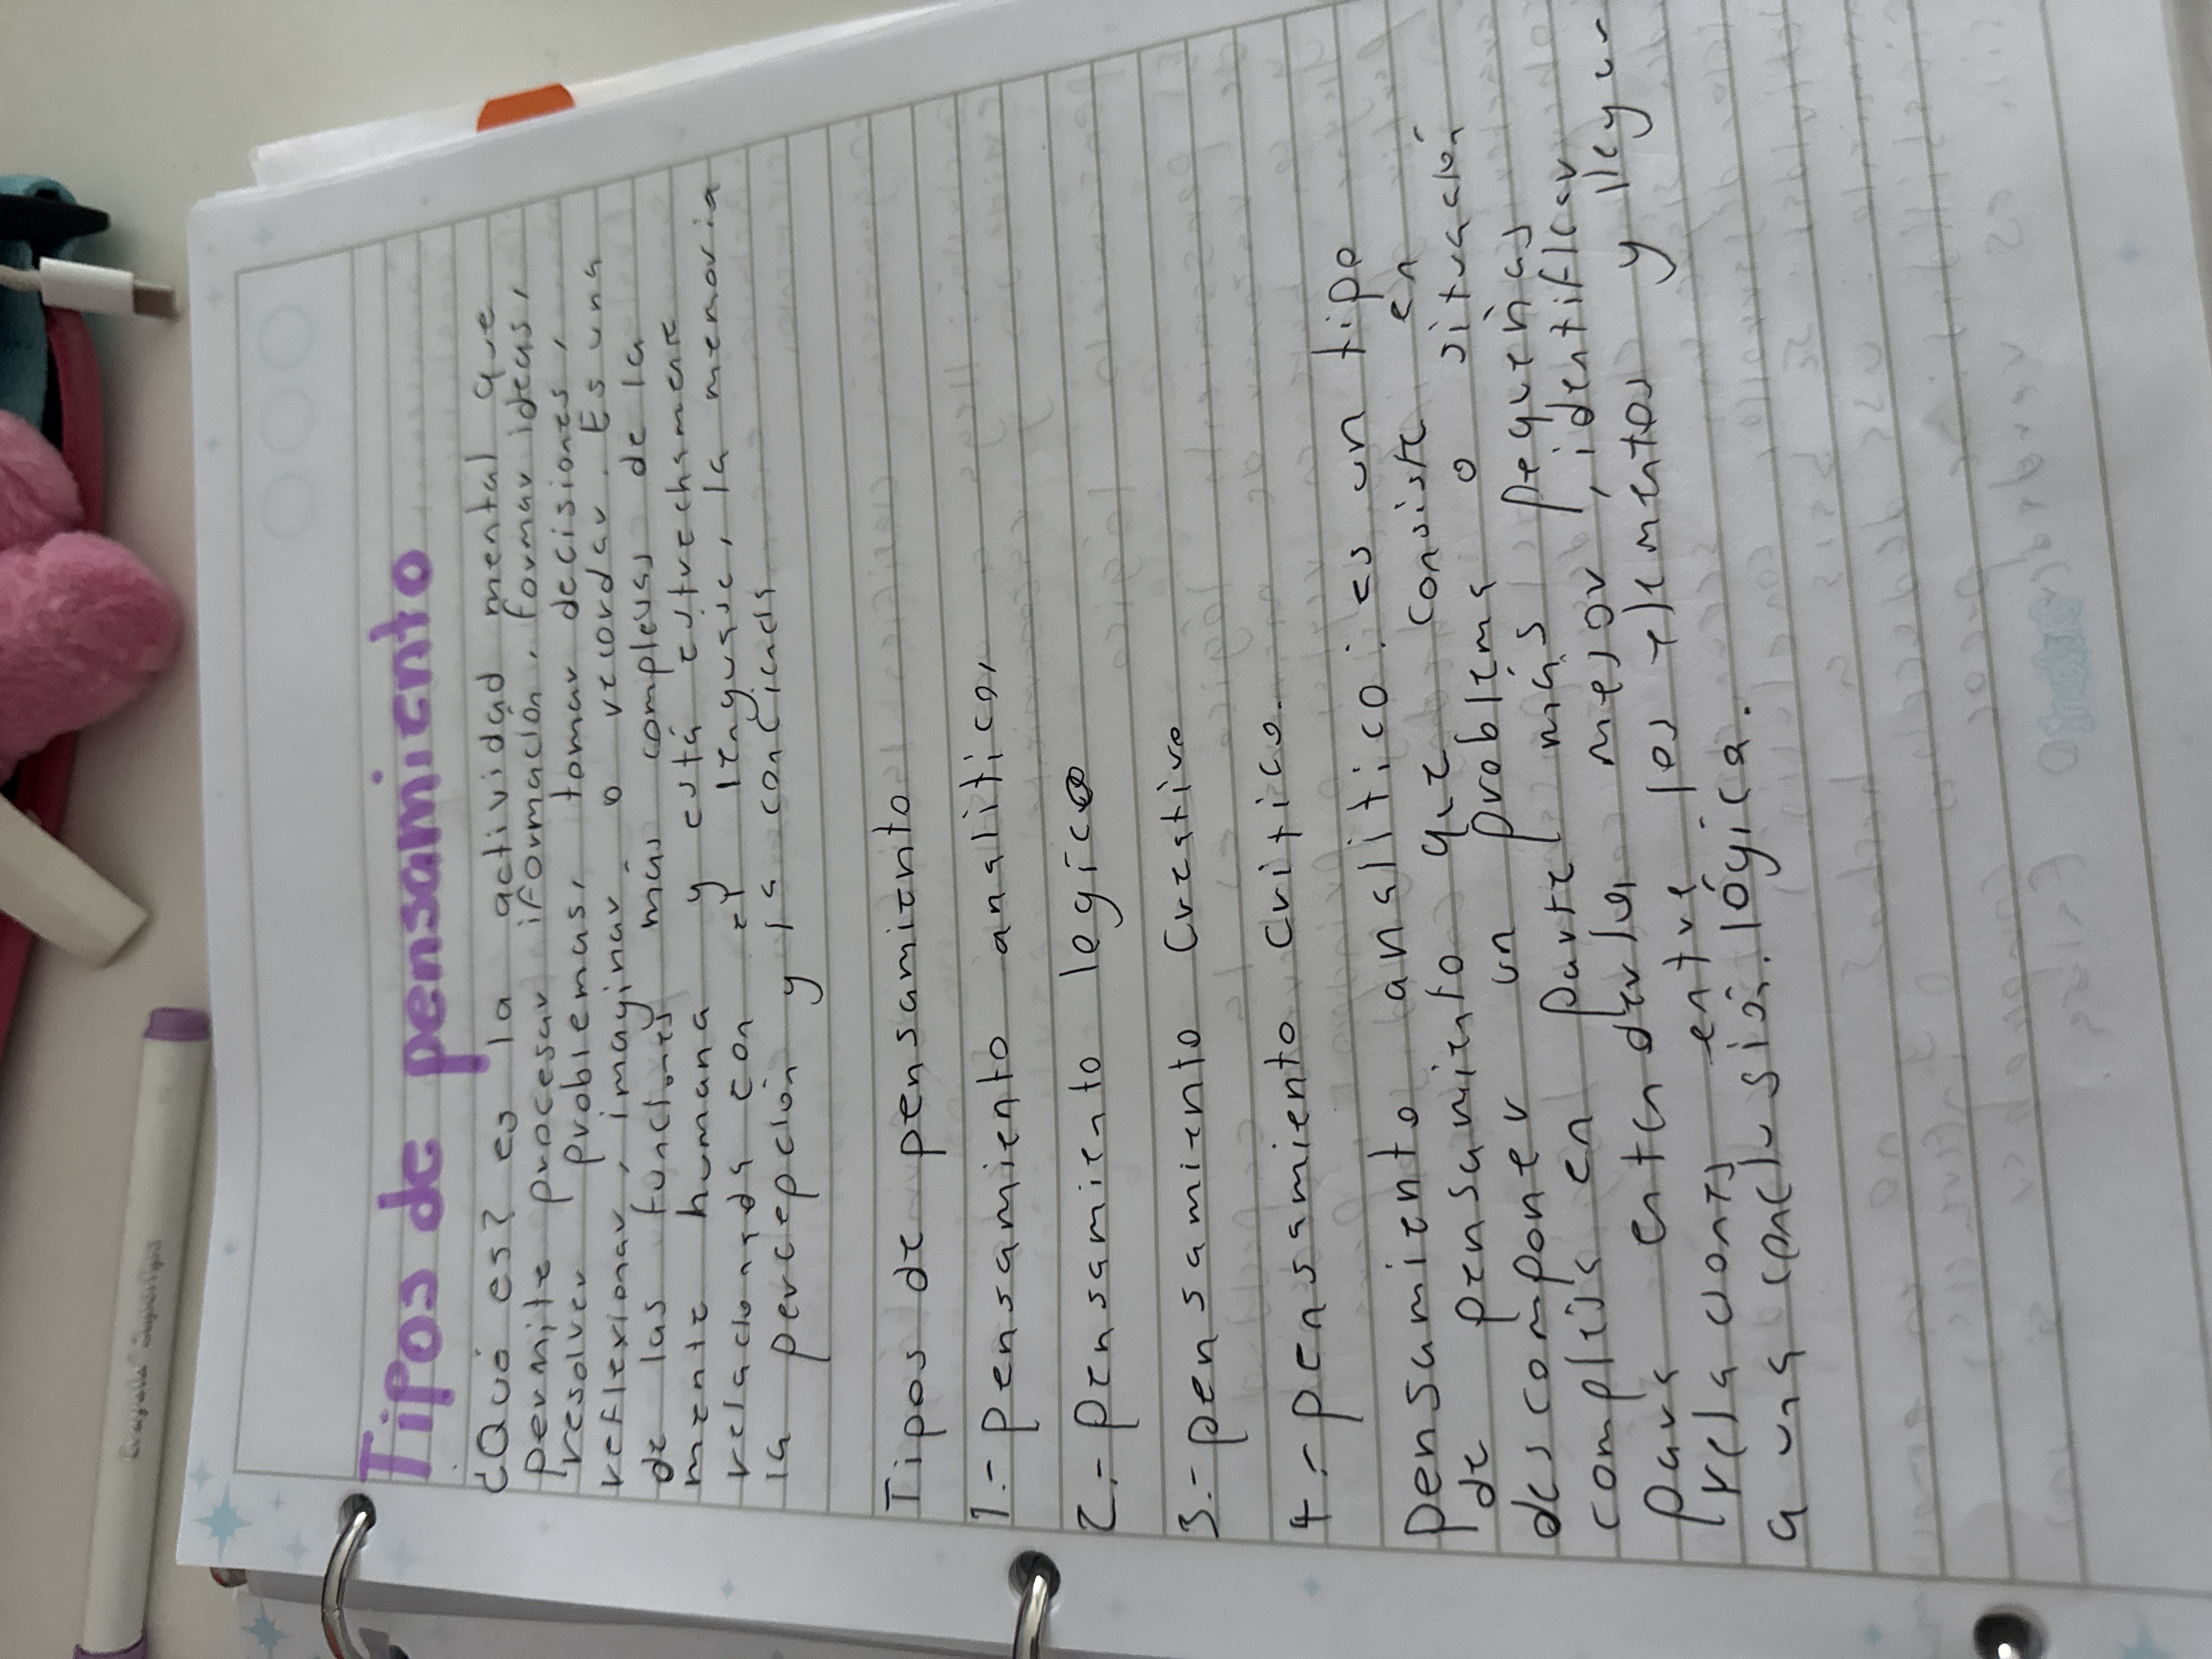 Tipos de pensamiento
¿Qué es? es la actividad mental que
permite procesar iformación, formar ideas,
resolver problemas, tomar decisiones,
reflexionar, imaginar o recordar. Es una
de las funciones más complejas de la
mente humana y está estrechamente
relacionada con el lenguaje, la memoria
la percepción y la conciencia
Tipos de pensamiento
1.- pensamiento analitico,
2.- pensamiento logico
3.- pensamiento creativo
4.- pensamiento critico.
pensamiento analitico: es un tipo
de pensamiento que consiste en
descomponer un problema o situación
compleja en parte más pequeñas
para entenderlo mejor, identificar
relaciones entre los elementos y llegar
a una conclusión lógica.